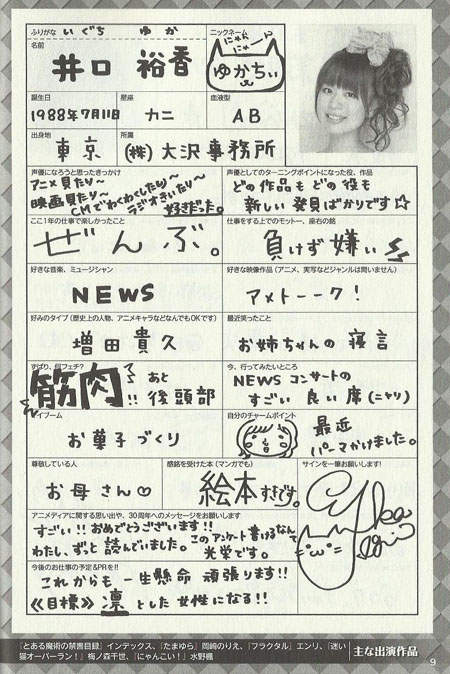 ふりがな いぐち ゆか
名前 井口 裕香
ニックネーム にゃんにゃーん ゆかちぃ
誕生日 1988年7月11日
星座 カニ
血液型 AB
出身地 東京
所属 (株)大沢事務所
声優になろうと思ったきっかけ
アニメ見たり〜
映画見たり〜
CMでわくわくしたり〜
ラジオきいたり〜
好きだった。
声優としてのターニングポイントになった役、作品
どの作品も どの役も
新しい 発見ばかりです☆
ここ1年の仕事で楽しかったこと
ぜんぶ。
仕事をする上でのモットー、座右の銘
負けず嫌い
好きな音楽、ミュージシャン
NEWS
好きな映像作品(アニメ、実写などジャンルは問いません)
アメトーーク!
好みのタイプ(歴史上の人物、アニメキャラなどなんでもOKです)
増田貴久
最近笑ったこと
お姉ちゃんの 寝言
ずばり、何フェチ?
筋肉!! あと後頭部
今、行ってみたいところ
NEWS コンサートの
すごい 良い 席(ニヤリ)
マイブーム
お菓子づくり
自分のチャームポイント
最近
パーマかけました。
尊敬している人
お母さん♡
感銘を受けた本(マンガでも)
絵本すきです。
サインを一筆お願いします!
アニメディアに関する思い出や、30周年へのメッセージをお願いします
すごい!!おめでとうございます!!
わたし、ずっと 読んでいました。
このアンケート書けるなんて
光栄です。
今後のお仕事の予定&PRを!!
これからも 一生懸命 頑張ります!!
≪目標≫ 凛とした 女性になる!!
『とある魔術の禁書目録』インデックス、『たまゆら』岡崎のりえ、『フラクタル』エンリ、『迷い
猫オーバーラン!』梅ノ森千世、『にゃんこい!』水野楓
主な出演作品
9